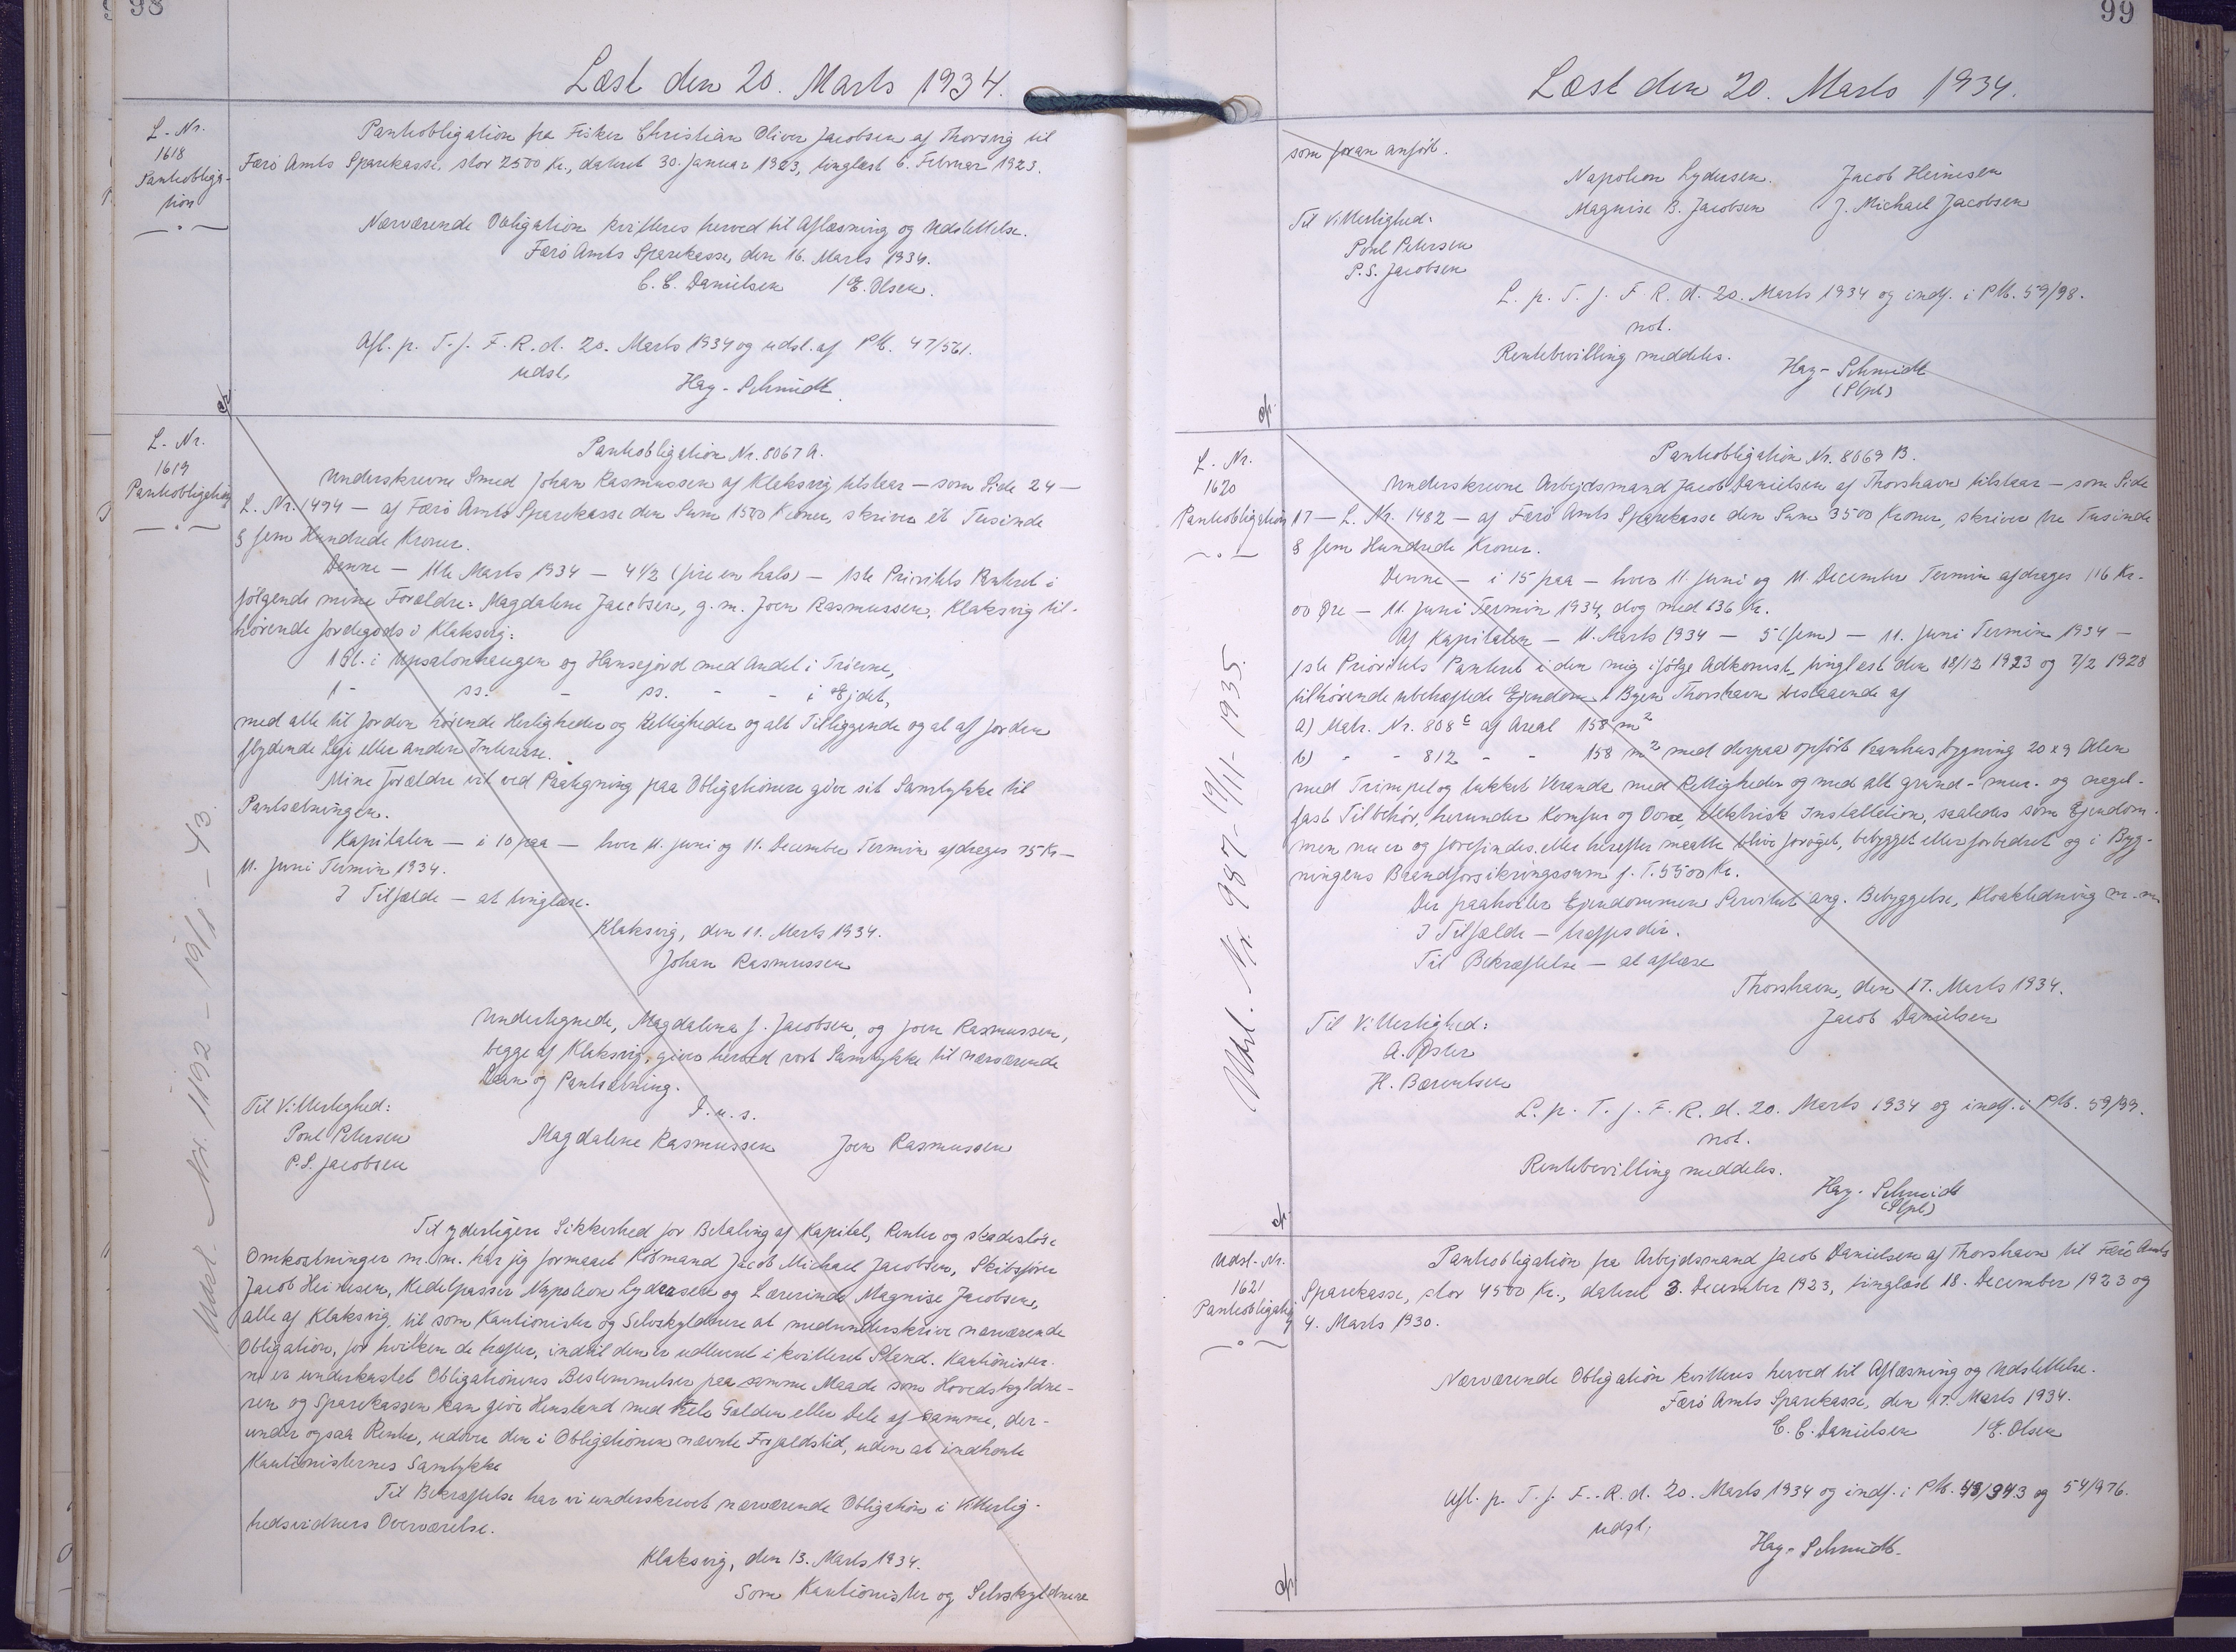 98
Læst den 20. Marts 1934.
L-Nr.
1618
Panteobliga-
tion
Panteobligation fra Fisker Christian Oliver Jacobsen af Thorsvig til
Færø Amts Sparekasse, stor 2500 Kr., dateret 30. Januar 1923, tinglæst 6. Februar 1923.
Nærværende Obligation kvitteres herved til Aflæsning og Udslettelse.
Færø Amts Sparekasse, den 16. Marts 1934.
C. C. Danielsen / E. Olsen.
Afl. p. T. f. F. R. d. 20. Marts 1934 og udsl. af PM. 47/561.
udsl.
Hay-Schmidt.
L-Nr.
1619
Panteobligation
Panteobligation Nr. 8067 A.
Underskrevne Smed Johan Rasmussen af Klaksvig tilstaar — som Side 24 —
L. Nr. 1494 — af Færø Amts Sparekasse den Sum 1500 Kroner, skriver et Tusinde
& fem Hundrede Kroner.
Denne — 11te Marts 1934 — 4 1/2 (fire en halv) — 1ste Prioritets Panteret i
følgende mine Forældre: Magdalene Jacobsen, g. m. Joen Rasmussen, Klaksvig til-
hørende Jordegods i Klaksvig:
1 Gl. i Upsalonhaugen og Hansejord med Andel i Trierne,
1 - ss. - ss. - - i Ejdet,
med alle til Jorden hørende Herligheder og Rettigheder og alt Tilliggende og al af Jorden
flydende Leje eller anden Interesse.
Mine Forældre vil ved Paategning paa Obligationen give sit Samtykke til
Pantsætningen.
Kapitalen — i 10 paa — hver 11. Juni og 11. December Termin afdrages 75 Kr —
11. Juni Termin 1934.
I Tilfælde — at tinglæse.
Klaksvig, den 11. Marts 1934.
Johan Rasmussen
Undertegnede, Magdalena J. Jacobsen, og Joen Rasmussen,
begge af Klaksvig, giver herved vort Samtykke til nærværende
Laan og Pantsætning.
D. u. s.
Til Vitterlighed:
Poul Petersen
P. S. Jacobsen
Magdalene Rasmussen Joen Rasmussen
Til yderligere Sikkerhed for Betaling af Kapital, Renter og skadesløse
Omkostninger m. m. har jeg formaaet Købmand Jacob Michael Jacobsen, Skibsfører
Jacob Heinesen, Medelpasser Napoleon Lydersen og Lærerinde Magnise Jacobsen,
alle af Klaksvig, til som Kautionister og Selvskyldnere at medunderskrive nærværende
Obligation, for hvilken de hæfter, indtil den er udleveret i kvitteret Stand. Kautionister-
ne er underkastet Obligationens Bestemmelser paa samme Maade som Hovedskyldne-
ren og Sparekassen kan give Henstand med hele Gælden eller Dele af samme, der-
under ogsaa Renter, udover den i Obligationen nævnte Forfaldstid, uden at indhente
Kautionisternes Samtykke
Til Bekræftelse har vi underskrevet nærværende Obligation i Vitterlig-
hedsvidners Overværelse.
Klaksvig, den 13. Marts 1934.
Som Kautionister og Selvskyldnere
Udsl. Nr. 1192 - 19/1 - 43.
99
Læst den 20. Marts 1934.
som foran anført.
Napoleon Lydersen. Jacob Heinesen
Magnise B. Jacobsen J. Michael Jacobsen
Til Vitterlighed:
Poul Petersen
P. S. Jacobsen
L. p. T. f. F. R. d. 20. Marts 1934 og indf. i PM. 59/98.
not.
Rentebevilling meddeles.
Hay-Schmidt
L-Nr.
1620
Panteobligation
Panteobligation Nr. 8069 B.
Underskrevne Arbejdsmand Jacob Danielsen af Thorshavn tilstaar — som Side
17 — L. Nr. 1482 — af Færø Amts Sparekasse den Sum 3500 Kroner, skriver tre Tusinde
& fem Hundrede Kroner.
Denne — i 15 paa — hver 11. Juni og 11. December Termin afdrages 116 Kr.
00 Øre — 11. Juni Termin 1934, dog med 136 Kr.
Af Kapitalen — 11. Marts 1934 — 5 (fem) — 11. Juni Termin 1934 —
1ste Prioritets Panteret i den mig ifølge Adkomst, tinglæst den 18/12 1923 og 7/2 1928
tilhørende ubehæftede Ejendom i Byen Thorshavn bestaaende af
a) Matr. Nr. 808 c af Areal 158 m2
b) - - 812 - - 158 m2 med derpaa opført Vaanhusbygning 20 x 9 Alen
med Trimpel og lukket Veranda med Rettigheder og med alt grund- mur- og nagel-
fast Tilbehør, herunder Komfur og Ovne, elektrisk Installation, saaledes som Ejendom-
men nu er og forefindes eller herefter maatte blive forøget, bebygget eller forbedret og i Byg-
ningens Brandforsikringssum f. T. 5500 Kr.
Der paahviler Ejendommen Servitut ang. Bebyggelse, Kloakledning m. m.
I Tilfælde —
Til Bekræftelse — at aflæse
Thorshavn, den 17. Marts 1934.
Jacob Danielsen
Til Vitterlighed:
A. Øster
H. Bærentsen
L. p. T. f. F. R. d. 20. Marts 1934 og indf. i PM. 59/99.
not.
Rentebevilling meddeles.
Hay-Schmidt
Udsl. Nr. 987 - 19/11 - 1935.
Udsl-Nr.
1621
Panteobligation
Panteobligation fra Arbejdsmand Jacob Danielsen af Thorshavn til Færø Amts
Sparekasse, stor 4500 Kr., dateret 3. December 1923, tinglæst 18. December 1923 og
4. Marts 1930.
Nærværende Obligation kvitteres herved til Aflæsning og Udslettelse.
Færø Amts Sparekasse, den 17. Marts 1934.
C. C. Danielsen / E. Olsen
Afl. p. T. f. F. R. d. 20. Marts 1934 og indf. i PM. 48/343 og 54/976.
udsl.
Hay-Schmidt.